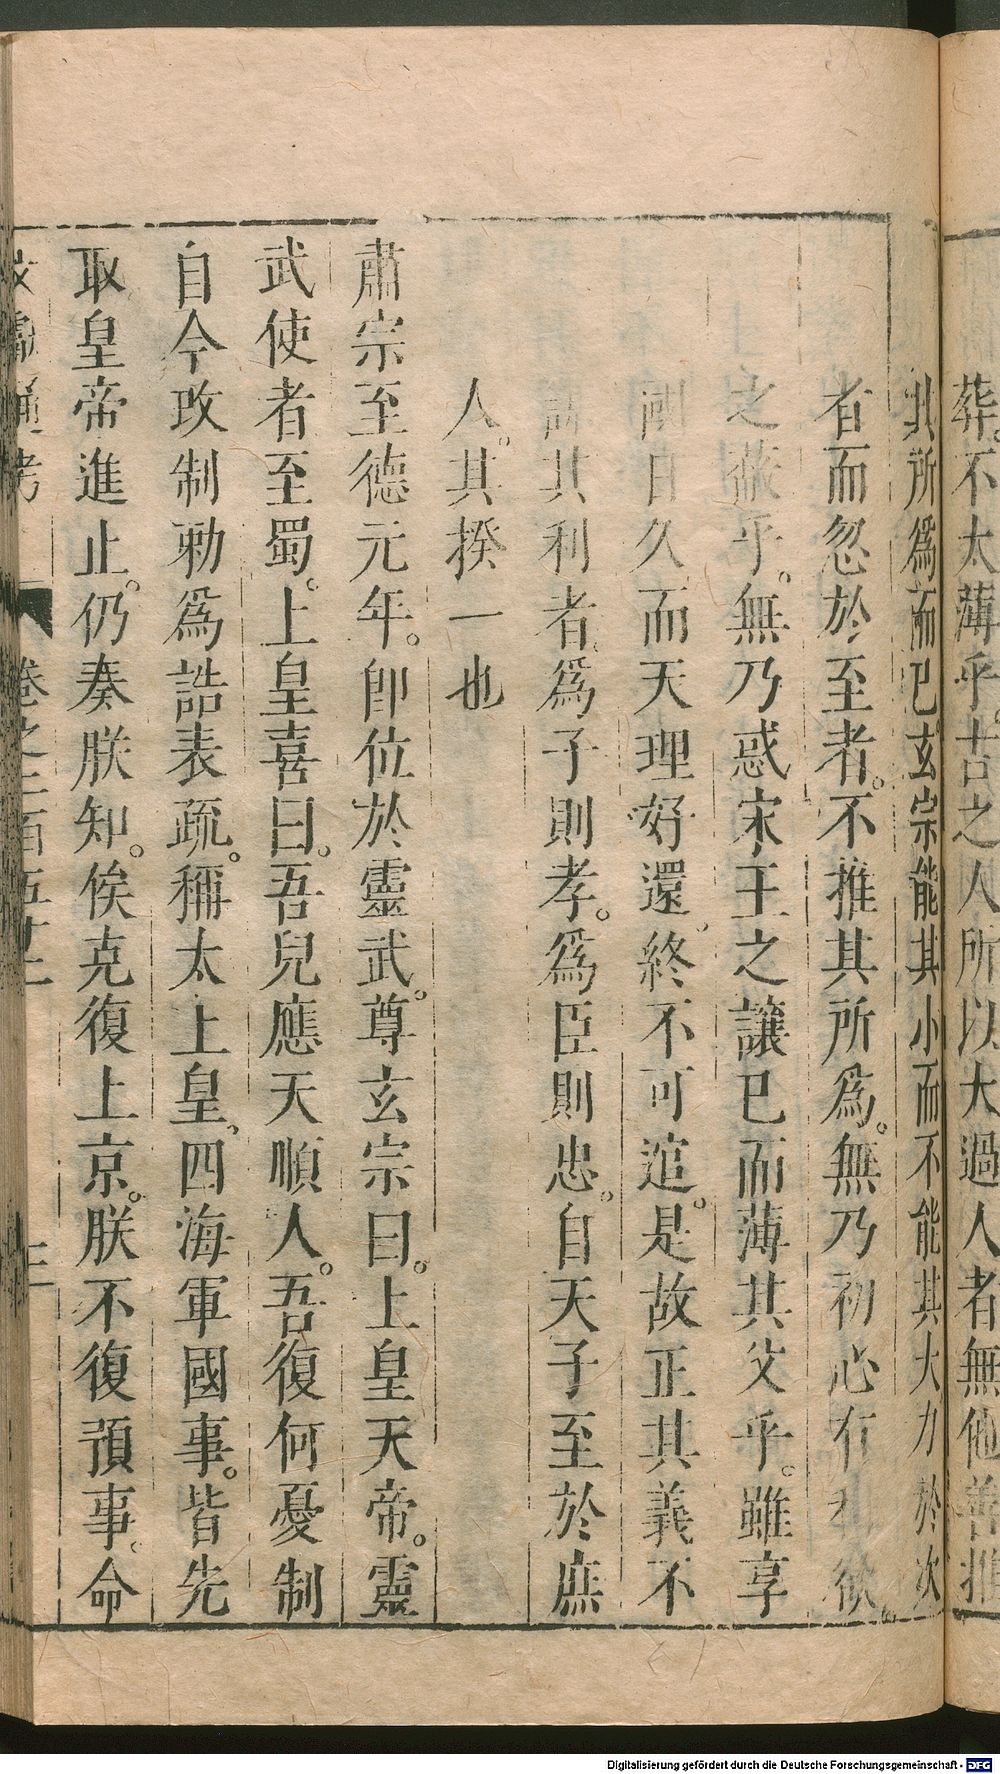 葬。不太薄乎。古之人所以大過人者無他善推
其所爲而已玄宗能其小而不能其大力於次
者而忽於至者。不推其所爲。無乃初心有利欲
之蔽乎。無乃惑宋王之讓已而薄其父乎。雖享
國日久而天理好還終不可逭。是故正其義不
謀其利者爲子則孝。爲臣則忠。自天子至於庶
人。其揆一也
肅宗至德元年。卽位於靈武。尊玄宗曰。上皇天帝。靈
武使者至蜀。上皇喜曰。吾兒應天順人。吾復何憂制
自今改制勑爲誥表疏。稱太上皇、四海軍國事。皆先
取皇帝進止。仍奏朕知。俟克復上京。朕不復預事。命
文獻通考 卷之二百五十二 三
Digitalisierung gefördert durch die Deutsche Forschungsgemeinschaft - DFG